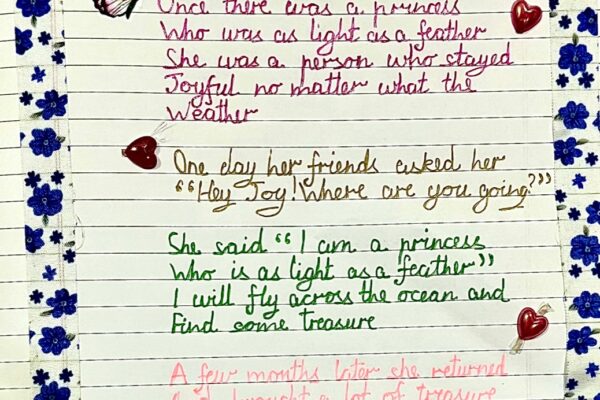 Once there was a princess
Who was as light as a feather
She was a person who stayed
Joyful no matter what the
Weather
One day her friends asked her
“Hey Joy! Where are you going?”
She said “I am a princess
Who is as light as a feather”
I will fly across the ocean and
Find some treasure
A few months later she returned
brought a lot of treasure